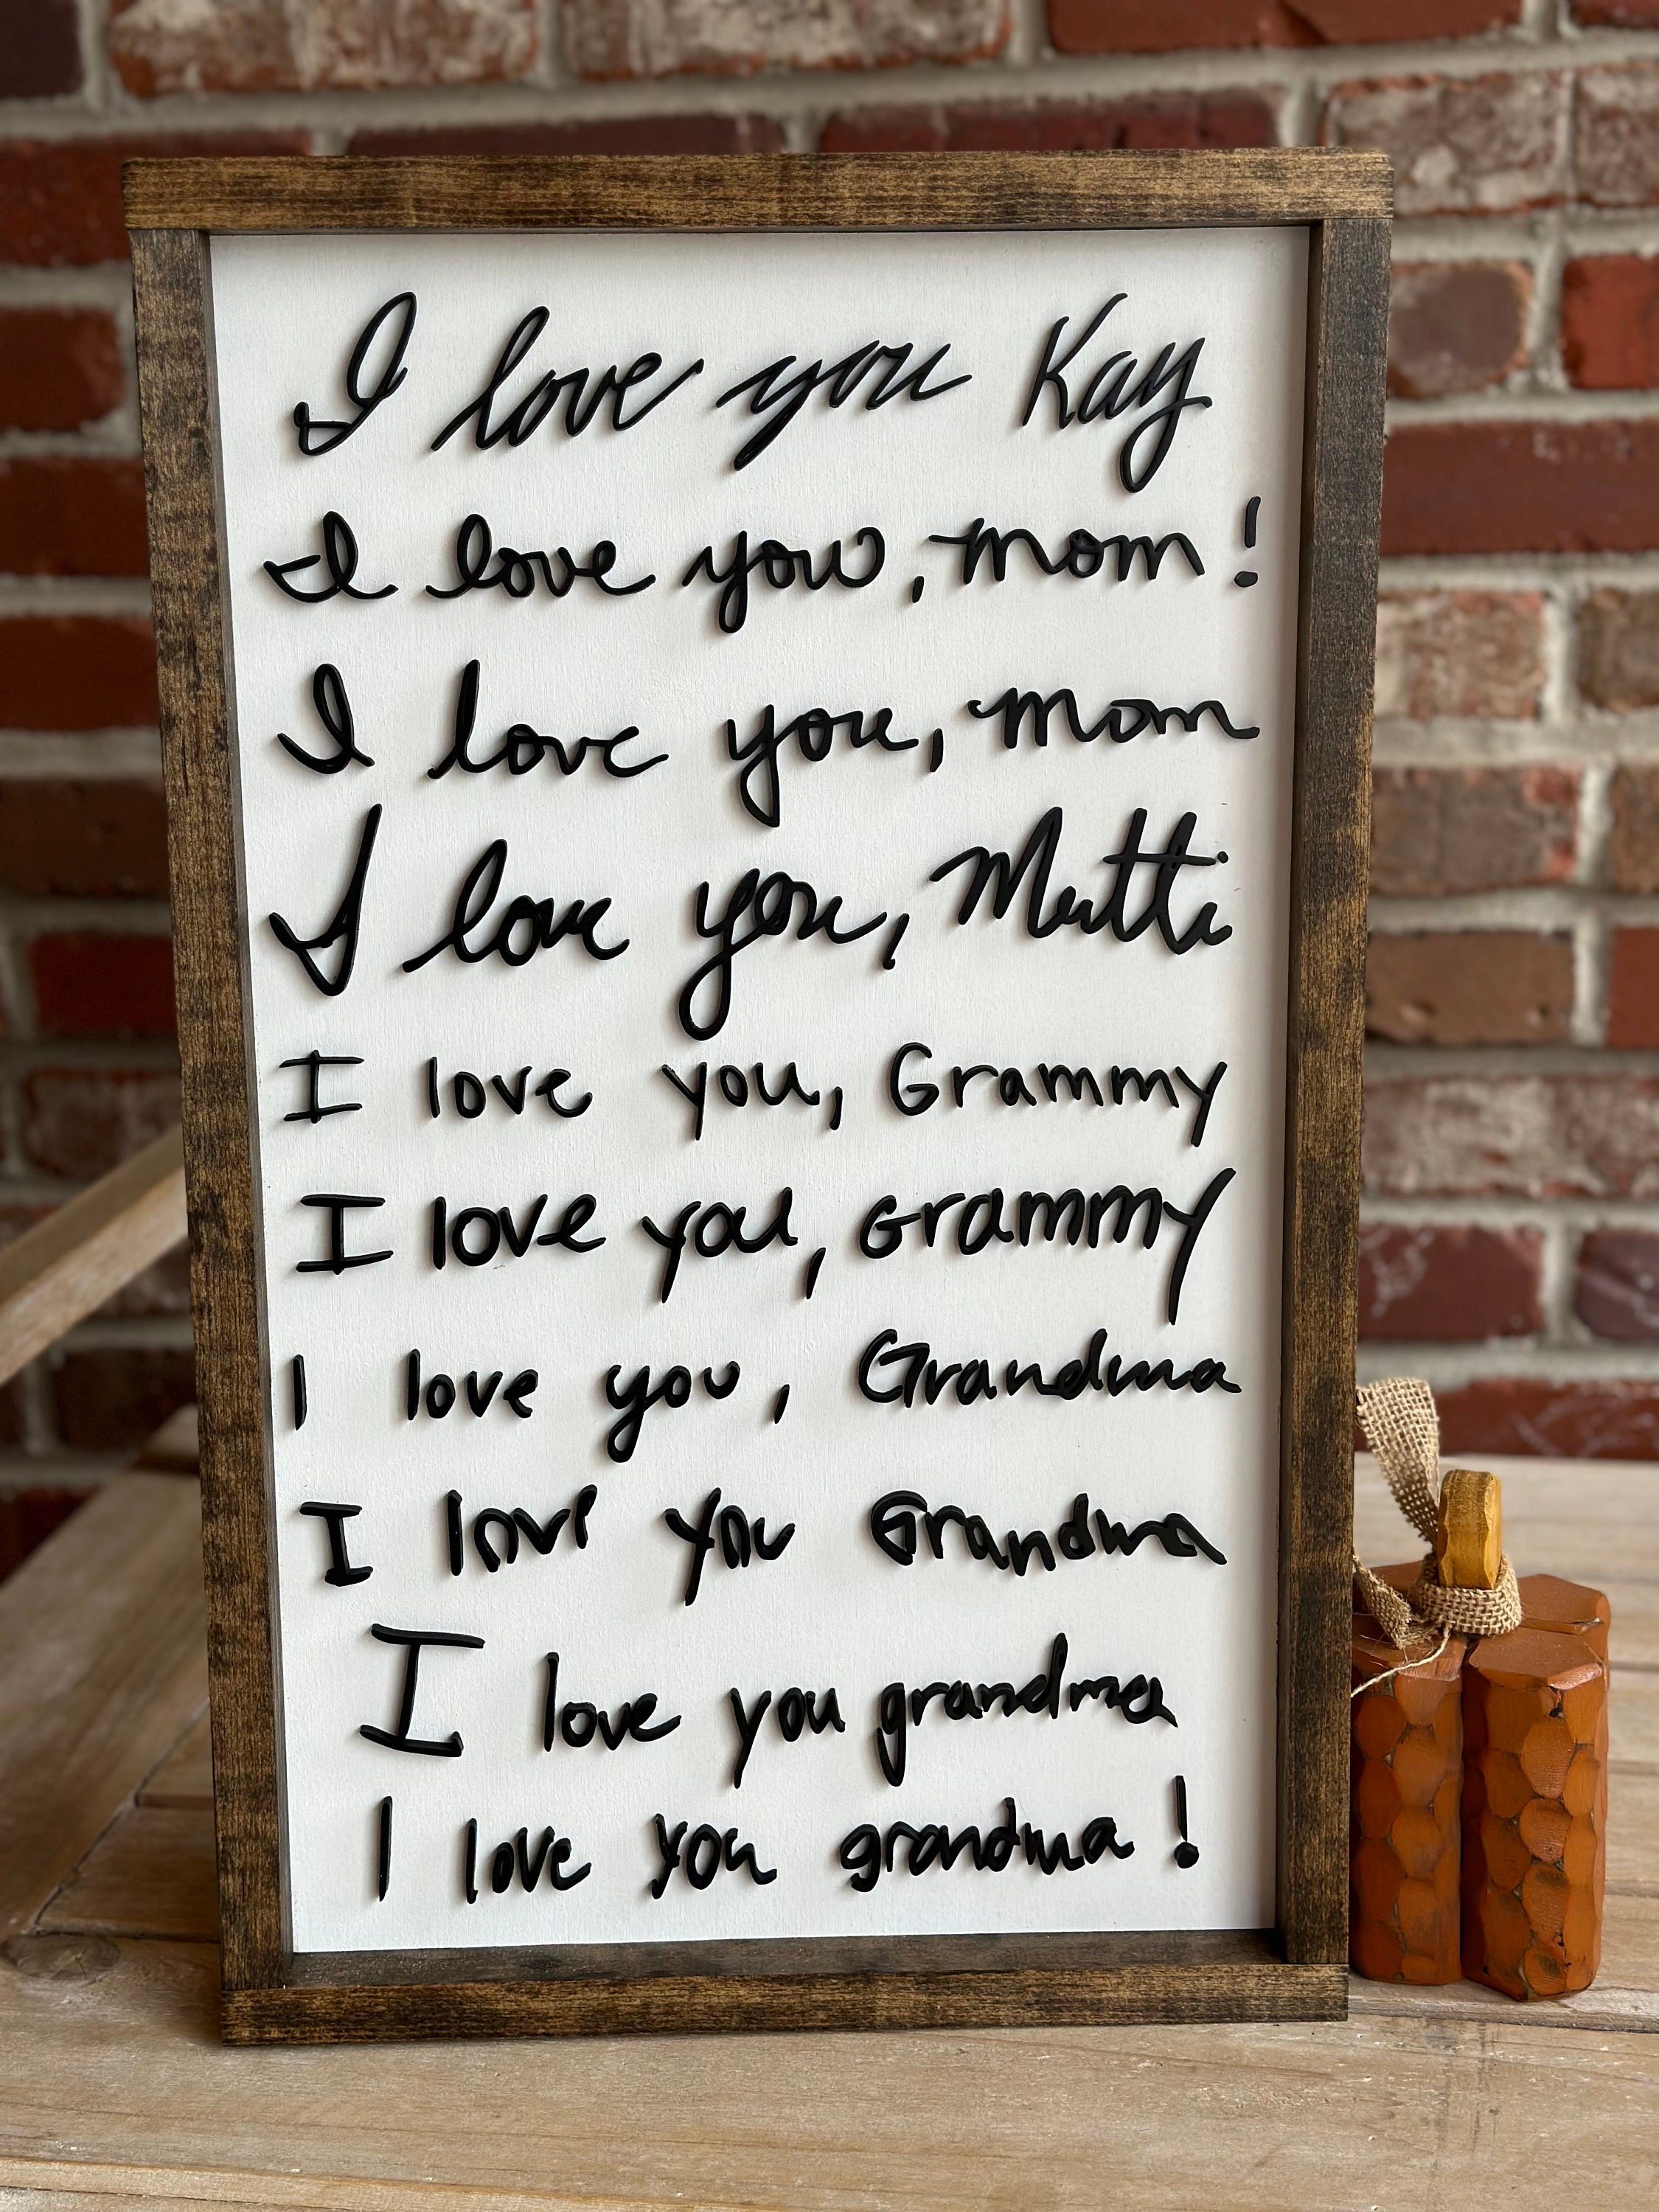 I love you Kay
I love you, mom!
I love you, mom
I love you, Mutti
I love you, Grammy
I love you, Grammy
I love you, Grandma
I love you Grandma
I love you grandma
I love you grandma!